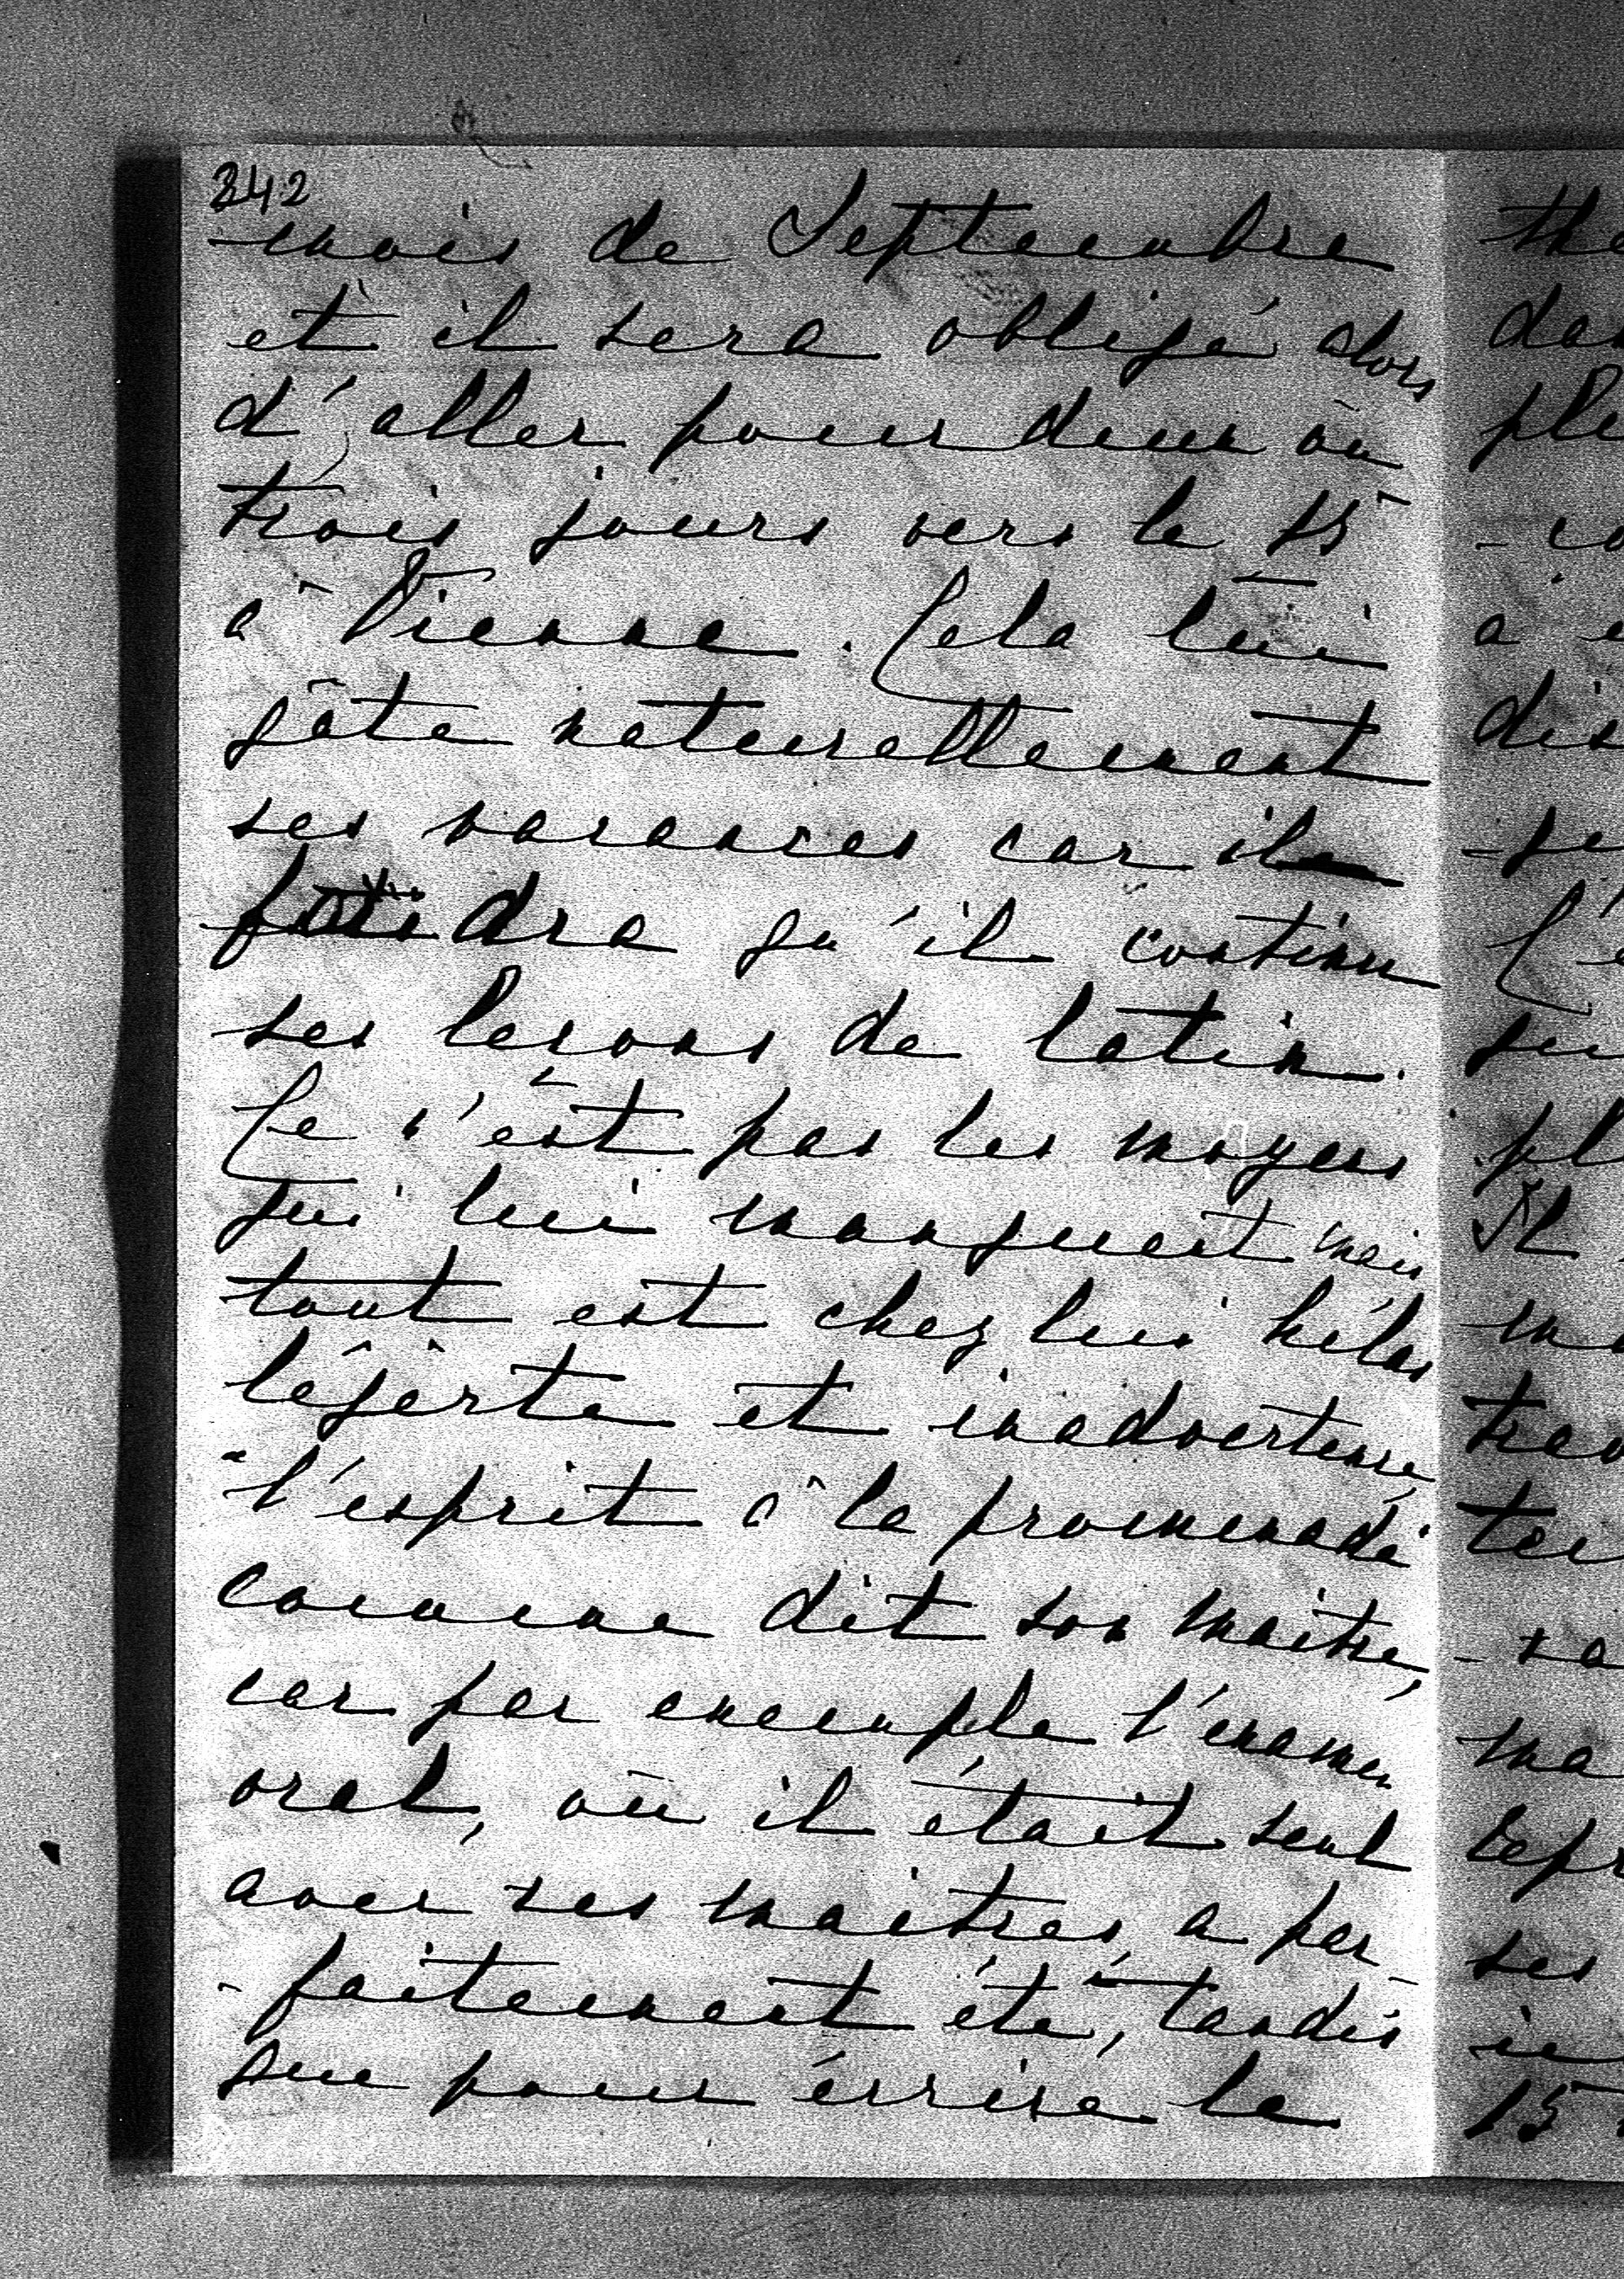 342
mois de Septembre
et il sera obligé alors
d'aller pour deux ou
trois jours vers le 15
à Vienne. Cela lui
gâte naturellement
ses vacances car il
faudra qu'il continu
ses leçons de latin.
Ce n'est pas les moyens
qui lui manquent mais
tout est chez lui hélas
légèrté et inadvertence
"l'esprit à la promenade"
comme dit son maître,
car par exemple l'examen
oral, où il était seul
avec ses maîtres, a par-
-faitement été, tandis
que pour écrire le
the
da
ple
-co
a
dis
-ge
C'e
qu
pl
Il
m
trav
ter
-sa
ma
repr
ses
in
15